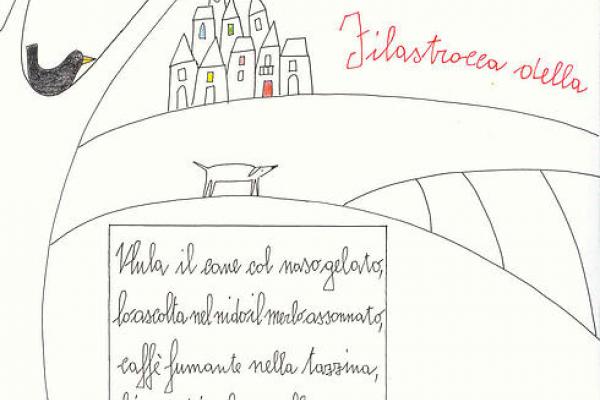 Filastrocca della
Ulula il cane col naso gelato,
lo ascolta nel nido il merlo assonnato,
caffè fumante nella tazzina,